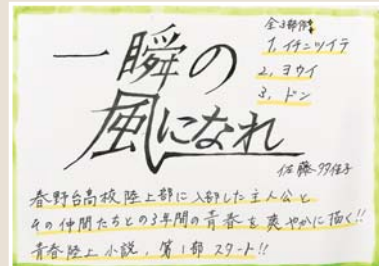 全3部作
1, イチニツイテ
2, ヨウイ
3, ドン
一瞬の
風になれ
佐藤多佳子
春野台高校陸上部に入部した主人公と
その仲間たちとの3年間の青春を爽やかに描く!!
青春陸上小説、第1部スタート!!